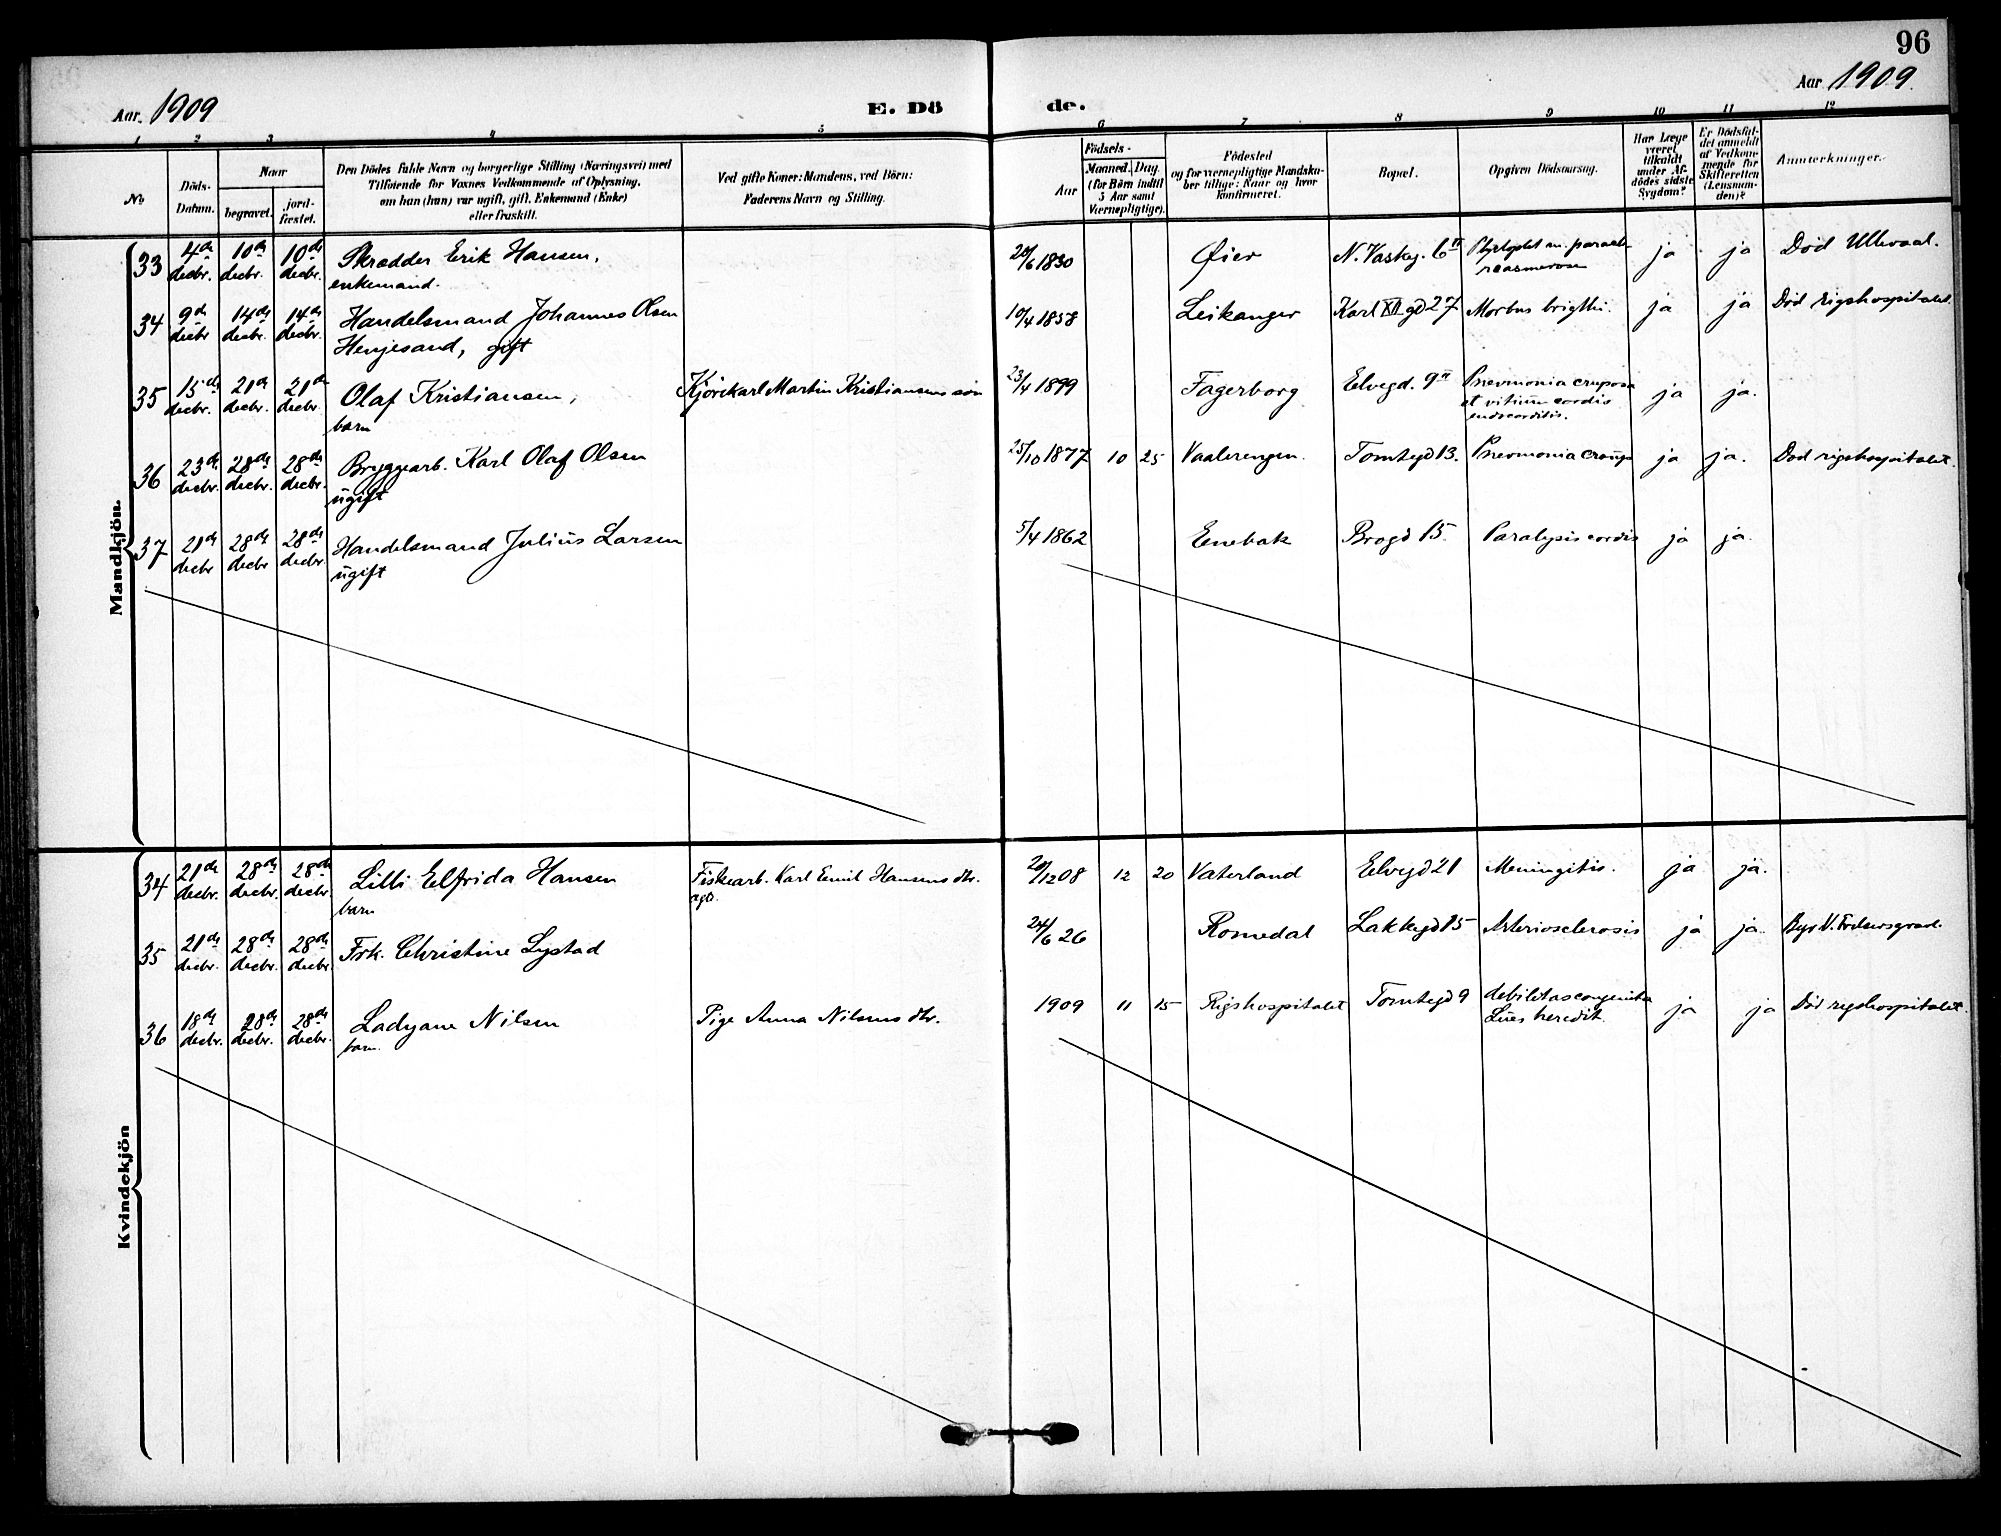 96
Aar. 1909
E. Dö
de.
Aar 1909.
1 2 3 4 5 6 7 8 9 10 11 12
No
Döds-
Datum.
Naar
begravet.
jord-
fæstet.
Den Dödes fulde Navn og borgerlige Stilling (Næringsvei) med
Tilföiende for Voxnes Vedkommende af Oplysning,
om han (hun) var ugift, gift, Enkemand (Enke)
eller fraskilt.
Ved gifte Koner: Mandens, ved Börn:
Faderens Navn og Stilling.
Födsels-
Aar
Maaned. Dag.
(for Börn indtil
5 Aar samt
Værnepligtige).
Födested
og for værnepligtige Mandska-
ber tillige: Naar og hvor
konfirmeret.
Bopæl.
Opgiven Dödsaarsag.
Har Læge
været
tilkaldt
under Af-
dödes sidste
Sygdom?
Er Dödsfal-
det anmeldt
af Vedkom-
mende for
Skifteretten
(Lensman-
den)?
Anmerkninger.
Mandkjön.
33 4de decbr. 10de decbr. 10de decbr. Skrædder Erik Hansen, 20/6 1830 Øier N. Vaskeg. 6 II ja ja Död Ullevaal.
enkemand.
34 9de decbr 14de decbr. 14de decbr. Handelsmand Johannes Olsen 10/4 1858 Leikanger Karl XII gd 27 Morbus brigthi. ja ja Död rigshospitalet.
Henjesand, gift
35 15de decbr. 21de decbr 21de decbr Olaf Kristiansen, Kjörekarl Martin Kristiansens sön 23/4 1899 Fagerborg Elvegd. 9 II Pnevmonia cruposa ja ja.
barn
et vitium cordis
endocorditis.
36 23de decbr. 28de decbr. 28de decbr. Bryggearb. Karl Olaf Olsen 25/10 1877 10 25 Vaalerengen. Tomtegd 13. Pnevmonia croup. ja ja. Död rigshospitalet.
ugift
37 21de decbr 28de decbr 28de decbr. Handelsmand Julius Larsen 5/4 1862 Enebak Brogd 15. Paralysis cordis ja ja.
ugift
Kvindekjön
34 21de decbr. 28de decbr. 28de decbr. Lilli Elfrida Hansen Fiskearb. Karl Emil Hansens dtr. 20/12 08 12 20 Vaterland Elvegd 21 Meningitis. ja ja.
barn
35 21de decbr. 28de decbr. 28de decbr. Frk. Christine Lystad 24/6 26 Romedal Lakkegd 15 Arteriosclerosis ja ja.
36 18de decbr. 28de decbr. 28de decbr. Ladyane Nilsen Pige Anna Nilsens dtr. 1909 11 15 Rigshospitalet Tomtegd 9 debilitas congenita ja ja Död rigshospitalet.
barn.
Lues heredit.